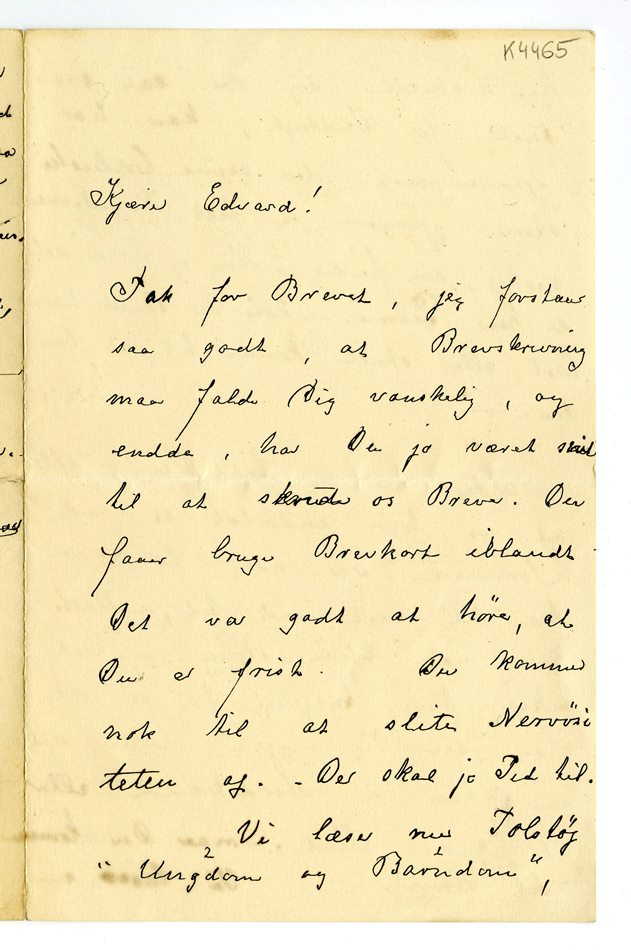 K4465
Kjære Edvard!
Tak for Brevet, jeg forstaar
saa godt, at Brevskrivning
maa falde Dig vanskelig, og
endda, har Du jo været
til at skrive os Breve. Du
faaer bruge Brevkort iblandt
Det var godt at höre, at
Du er frisk. Du kommer
nok til at slite Nervösi
teten af. - Der skal jo Tid til.
Vi læser nu Tolstöj
"Ungdom og Barndom",
2